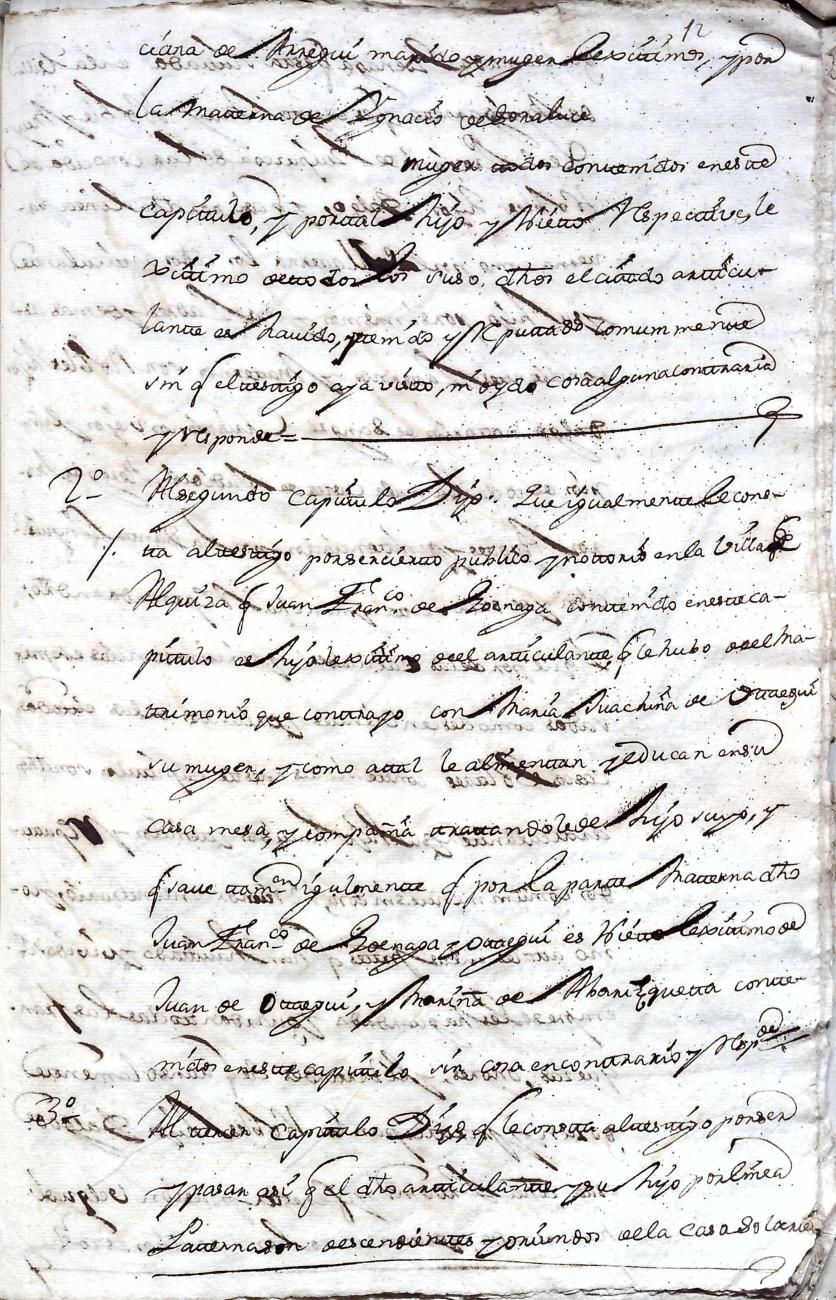 12
ciana de Arregui marido y muger lexitimos, y por
la Materna de Ygnacio de Gorialuce
muger todos contenidos en este
capitulo, y por tal hijo y Nieto Respective, le
xitimo de todos los suso dhos el citado articu-
lante es havido, tenido y Reputtado comunmente
sin q el testigo aya visto, ni oydo cosa alguna contraria
y Responde =
2º Al segundo capitulo Dijo. Que igualmente le cons-
ta al testigo por ser cierto publico y nottorio en la Villa de
Alquiza q Juan Franco de Zoenaga contenido en este ca-
pitulo es hijo lexitimo de el articulante, q le hubo de el Ma-
trimonio que contrajo con Maria Juachina de Ottaegui
su muger, y como a tal le alimentan y educan en su
casa mesa, y compañia trattandole de hijo suyo, y
q save tamen igulmente q por la parte Materna dho
Juan Franco de Zoenaga y Ottaegui es Nieto lexitimo de
Juan de Ottaegui, y Marina de Aharizquetta conte-
nidos en este capitulo sin cosa en contrario y Respde
3º Al tercer capitulo Dijo q le consta al testigo por ser
y pasar asi q el dho articulante y su hijo por linea
Patterna son descendientes y oriundos de la Casa Solar